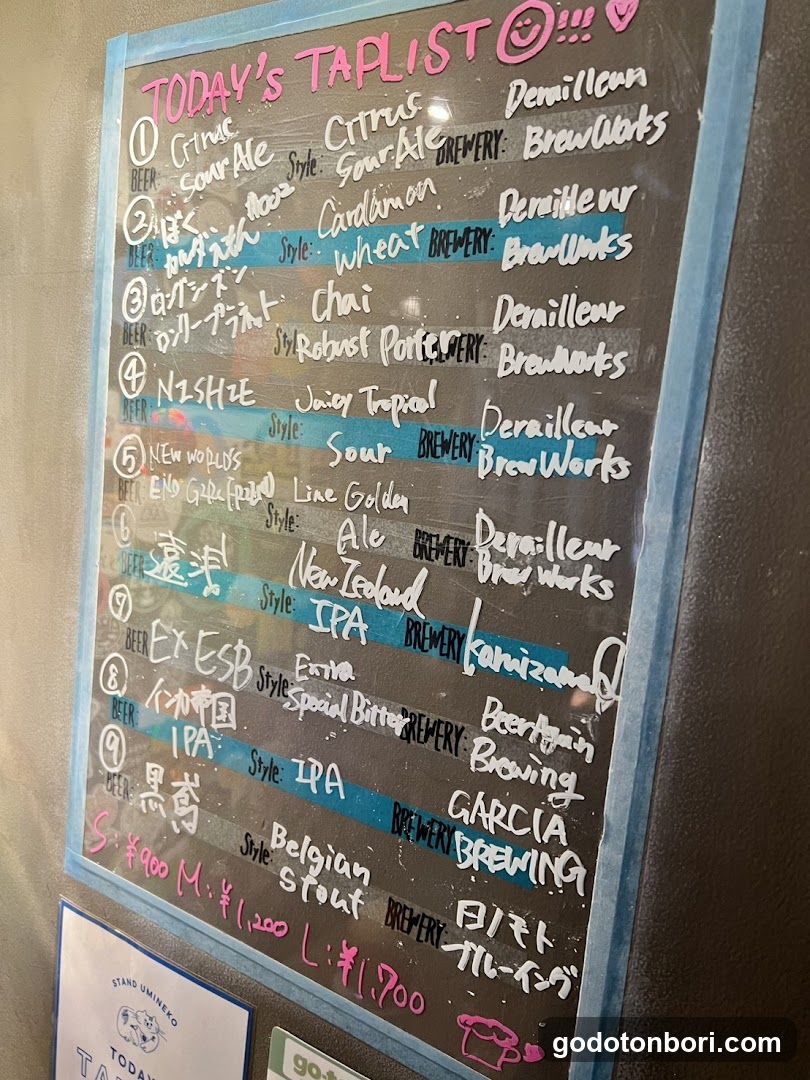 TODAY'S TAPLIST !!!
① Citrus Sour Ale
BEER:
Style: Citrus Sour Ale
BREWERY: Derailleur BrewWorks
② ぼく
BEER:
Style: Cardamon Wheat
BREWERY: Derailleur BrewWorks
③ ロングシーズン
BEER:
Style: Chai Robust Porter
BREWERY: Derailleur BrewWorks
④ NISHIE
BEER:
Style: Juicy Tropical Sour
BREWERY: Derailleur BrewWorks
⑤ NEW WORLD'S
END
BEER:
Style: Lime Golden Ale
BREWERY: Derailleur BrewWorks
⑥
BEER:
Style: New Zealand IPA
BREWERY:
⑦ EX ESB
BEER:
Style: Extra Special Bitter
BREWERY: Beer Again Brewing
⑧ インカ帝国 IPA
BEER:
Style: IPA
BREWERY: GARCIA BREWING
⑨ 黒鳶
BEER:
Style: Belgian Stout
BREWERY: 日ノモト ブルーイング
S:¥900 M:¥1,200 L:¥1,700
STAND UMINEKO
TODAY
godotonbori.com